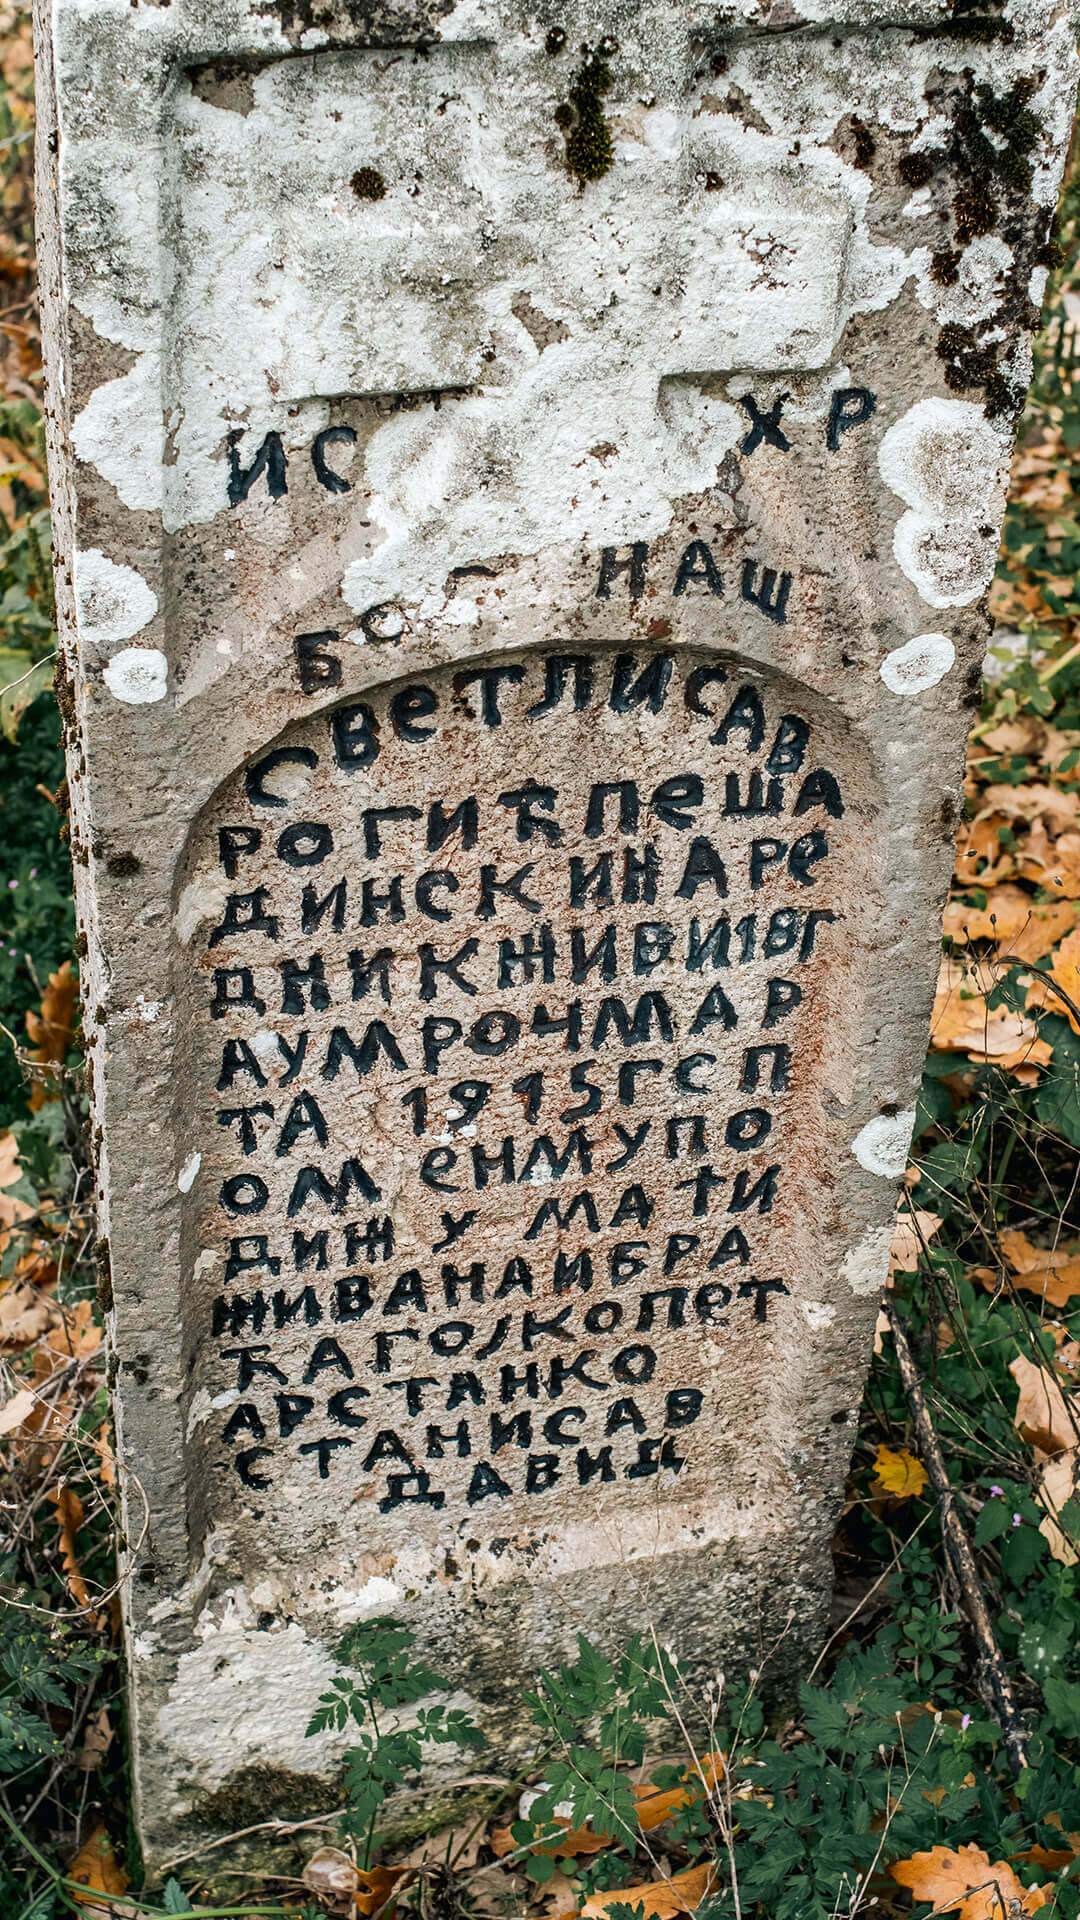 ИС ХР
Б С Г НАШ
СВЕТЛИСАВ
РОГИЋПЕША
ДИНСКИНАРЕ
ДНИКЖИВИ18Г
АУМРОЧМАР
ТА 1915ГСП
ОМ ЕНМУПО
ДИЖ У МАТИ
ЖИВАНАИБРА
ЋАГОЈКОПЕТ
АРСТАНКО
СТАНИСАВ
ДАВИД